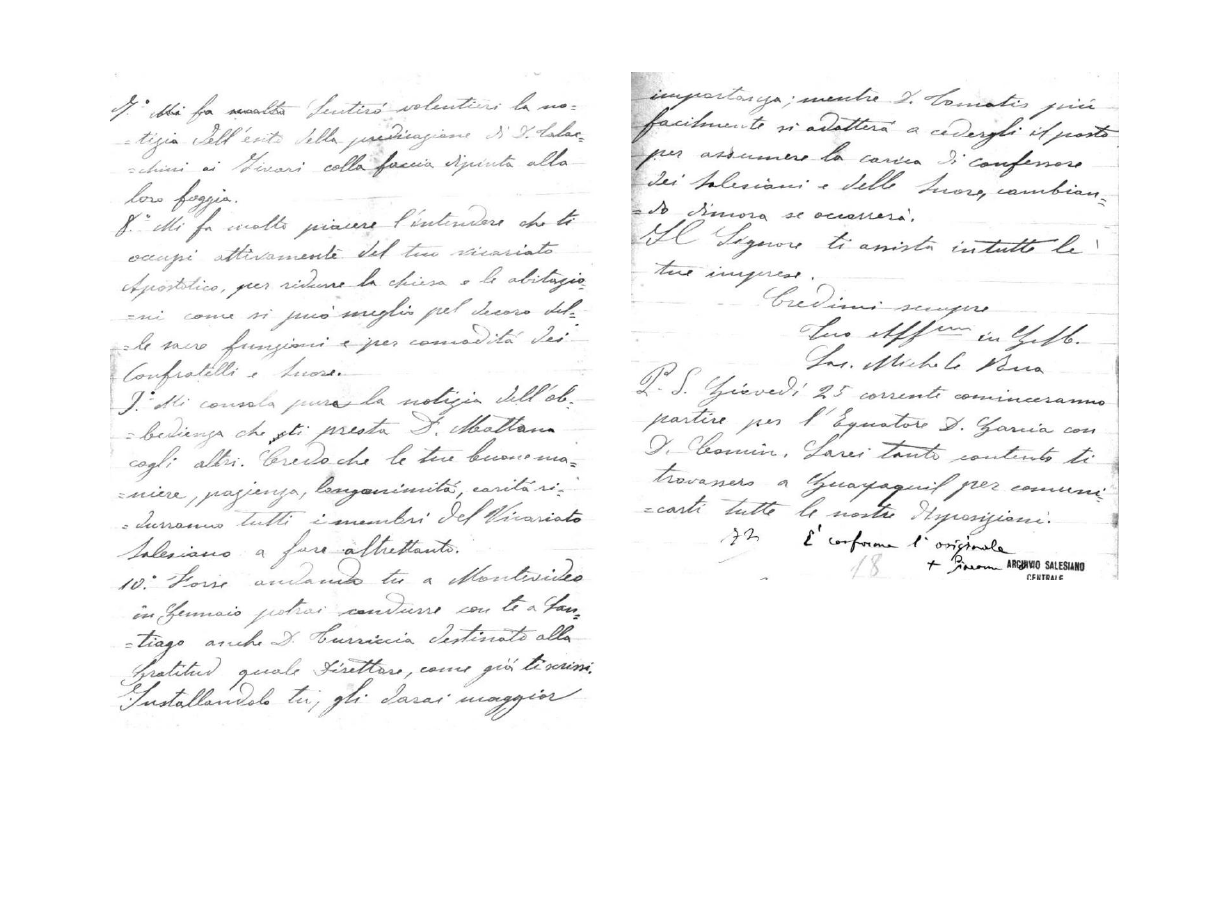 7.° Mi fa molto Sentirò volentieri la no=
=tizia dell'esito della predicazione di D. Calac=
=chini ai Jivari colla faccia dipinta alla
loro foggia.
8.° Mi fa molto piacere l'intendere che ti
occupi attivamente del tuo vicariato
Apostolico, per ridurre la chiesa e le abitazio=
=ni come si può meglio pel decoro del=
=le sacre funzioni e per comodità dei
Confratelli e Suore.
9.° Mi consola pure la notizia dell'ob=
=bedienza che ti presta D. Mattana
cogli altri. Credo che le tue buone ma=
=niere, pazienza, longanimità, carità ri=
=durranno tutti i membri del Vicariato
Salesiano a fare altrettanto.
10.° Forse andando tu a Montevideo
in Gennaio potrai condurre con te a San=
=tiago anche D. Curriccia destinato alla
Gratitud quale Direttore, come già ti scrissi.
Installandolo tu, gli darai maggior
importanza; mentre D. Tomatis più
facilmente si adatterà a cedergli il posto
per assumere la carica di confessore
dei Salesiani e delle Suore, cambian=
=do dimora se occorrerà.
Il Signore ti assista in tutte le
tue imprese.
Credimi sempre
Tuo Aff.mo in G. M.
Sac. Michele Rua
P. S. Giovedì 25 corrente cominceranno
partire per l'Equatore D. Garcia con
D. Comin. Sarei tanto contento ti
trovassero a Guayaquil per comuni=
=carti tutte le nostre disposizioni.
72 È conforme l'originale
18 + Giacomo ARCHIVIO SALESIANO
CENTRALE